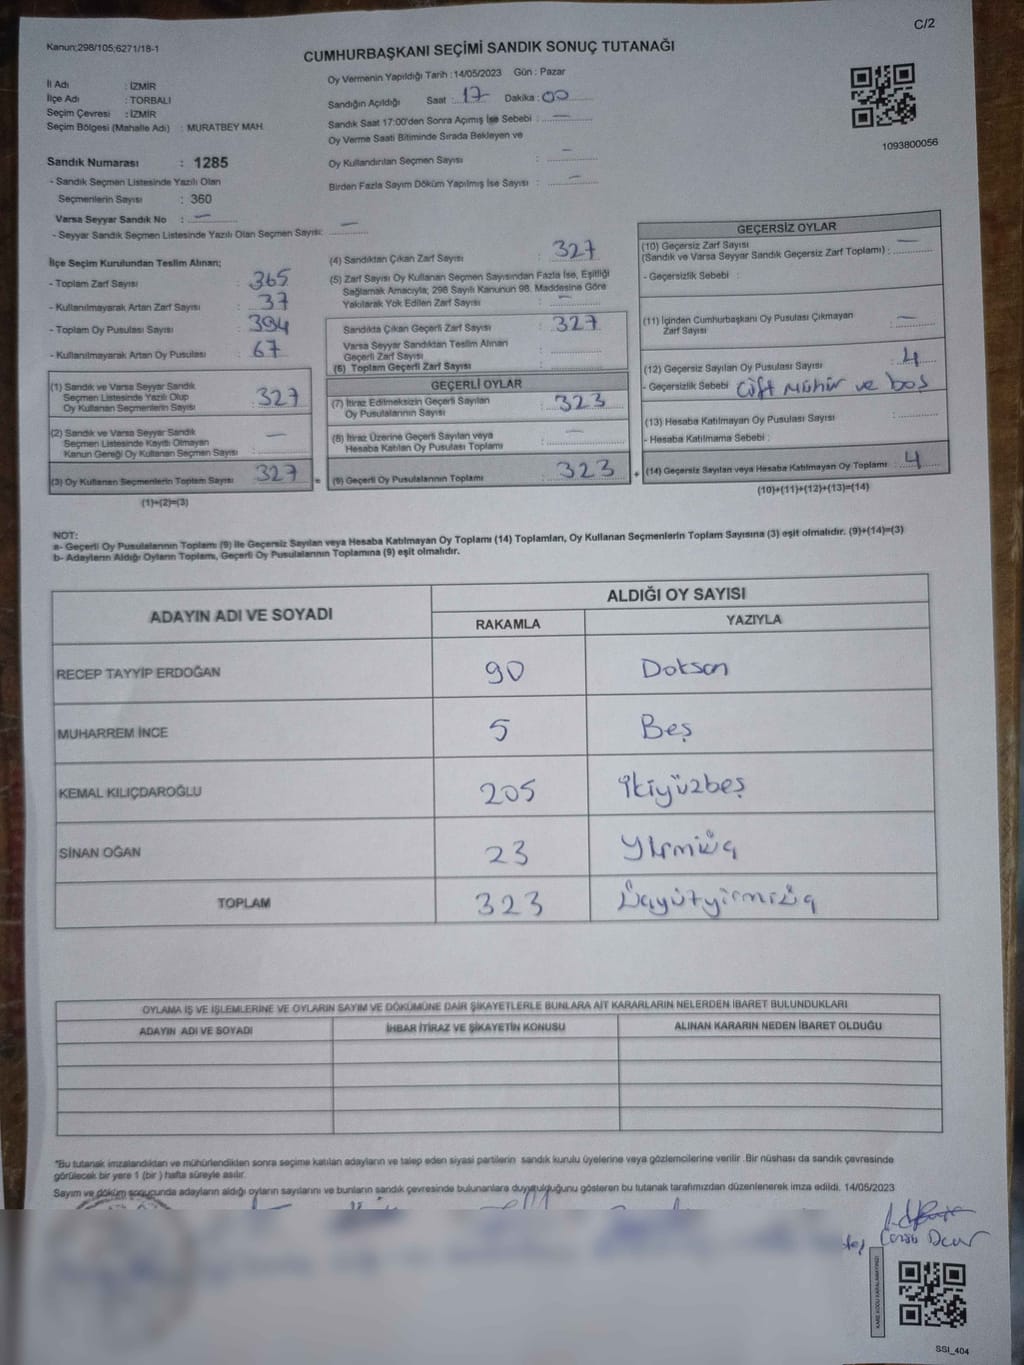 C/2
Kanun;298/105;6271/18-1
CUMHURBAŞKANI SEÇİMİ SANDIK SONUÇ TUTANAĞI
İl Adı : İZMİR
İlçe Adı : TORBALI
Seçim Çevresi : İZMİR
Seçim Bölgesi (Mahalle Adı) : MURATBEY MAH.
Oy Vermenin Yapıldığı Tarih : 14/05/2023 Gün : Pazar
Sandığın Açıldığı Saat : 17 Dakika : 00
Sandık Saat 17:00'den Sonra Açımış İse Sebebi : —
Oy Verme Saati Bitiminde Sırada Bekleyen ve
Oy Kullandırılan Seçmen Sayısı : —
Birden Fazla Sayım Döküm Yapılmış İse Sayısı : —
1093800056
Sandık Numarası : 1285
- Sandık Seçmen Listesinde Yazılı Olan
Seçmenlerin Sayısı : 360
Varsa Seyyar Sandık No : —
- Seyyar Sandık Seçmen Listesinde Yazılı Olan Seçmen Sayısı: —
İlçe Seçim Kurulundan Teslim Alınan;
- Toplam Zarf Sayısı : 365
- Kullanılmayarak Artan Zarf Sayısı : 37
- Toplam Oy Pusulası Sayısı : 394
- Kullanılmayarak Artan Oy Pusulası : 67
(1) Sandık ve Varsa Seyyar Sandık
Seçmen Listesinde Yazılı Olup
Oy Kullanan Seçmenlerin Sayısı : 327
(2) Sandık ve Varsa Seyyar Sandık
Seçmen Listesinde Kayıtlı Olmayan
Kanun Gereği Oy Kullanan Seçmen Sayısı : —
(3) Oy Kullanan Seçmenlerin Toplam Sayısı : 327
(1)+(2)=(3)
(4) Sandıktan Çıkan Zarf Sayısı : 327
(5) Zarf Sayısı Oy Kullanan Seçmen Sayısından Fazla İse, Eşitliği
Sağlamak Amacıyla; 298 Sayılı Kanunun 98. Maddesine Göre
Yakılarak Yok Edilen Zarf Sayısı : —
Sandıkta Çıkan Geçerli Zarf Sayısı : 327
Varsa Seyyar Sandıktan Teslim Alınan
Geçerli Zarf Sayısı :
(6) Toplam Geçerli Zarf Sayısı :
GEÇERLİ OYLAR
(7) İtiraz Edilmeksizin Geçerli Sayılan
Oy Pusulalarının Sayısı : 323
(8) İtiraz Üzerine Geçerli Sayılan veya
Hesaba Katılan Oy Pusulası Toplamı : —
= (9) Geçerli Oy Pusulalarının Toplamı : 323 +
GEÇERSİZ OYLAR
(10) Geçersiz Zarf Sayısı
(Sandık ve Varsa Seyyar Sandık Geçersiz Zarf Toplamı) : —
- Geçersizlik Sebebi :
(11) İçinden Cumhurbaşkanı Oy Pusulası Çıkmayan
Zarf Sayısı : —
(12) Geçersiz Sayılan Oy Pusulası Sayısı : 4
- Geçersizlik Sebebi : Çift Mühür ve boş
(13) Hesaba Katılmayan Oy Pusulası Sayısı :
- Hesaba Katılmama Sebebi :
(14) Geçersiz Sayılan veya Hesaba Katılmayan Oy Toplamı : 4
(10)+(11)+(12)+(13)=(14)
NOT:
a- Geçerli Oy Pusulalarının Toplamı (9) ile Geçersiz Sayılan veya Hesaba Katılmayan Oy Toplamı (14) Toplamları, Oy Kullanan Seçmenlerin Toplam Sayısına (3) eşit olmalıdır. (9)+(14)=(3)
b- Adayların Aldığı Oyların Toplamı, Geçerli Oy Pusulalarının Toplamına (9) eşit olmalıdır.
ADAYIN ADI VE SOYADI ALDIĞI OY SAYISI
RAKAMLA YAZIYLA
RECEP TAYYİP ERDOĞAN 90 Doksan
MUHARREM İNCE 5 Beş
KEMAL KILIÇDAROĞLU 205 ikiyüzbeş
SİNAN OĞAN 23 Yirmiüç
TOPLAM 323 Üçyüzyirmiüç
OYLAMA İŞ VE İŞLEMLERİNE VE OYLARIN SAYIM VE DÖKÜMÜNE DAİR ŞİKAYETLERLE BUNLARA AİT KARARLARIN NELERDEN İBARET BULUNDUKLARI
ADAYIN ADI VE SOYADI İHBAR İTİRAZ VE ŞİKAYETİN KONUSU ALINAN KARARIN NEDEN İBARET OLDUĞU
*Bu tutanak imzalandıktan ve mühürlendikten sonra seçime katılan adayların ve talep eden siyasi partilerin sandık kurulu üyelerine veya gözlemcilerine verilir .Bir nüshası da sandık çevresinde
görülecek bir yere 1 (bir ) hafta süreyle asılır.
Sayım ve döküm sonucunda adayların aldığı oyların sayılarını ve bunların sandık çevresinde bulunanlara duyurulduğunu gösteren bu tutanak tarafımızdan düzenlenerek imza edildi. 14/05/2023
KARE KODU KARALAMAYINIZ!
SSI_404